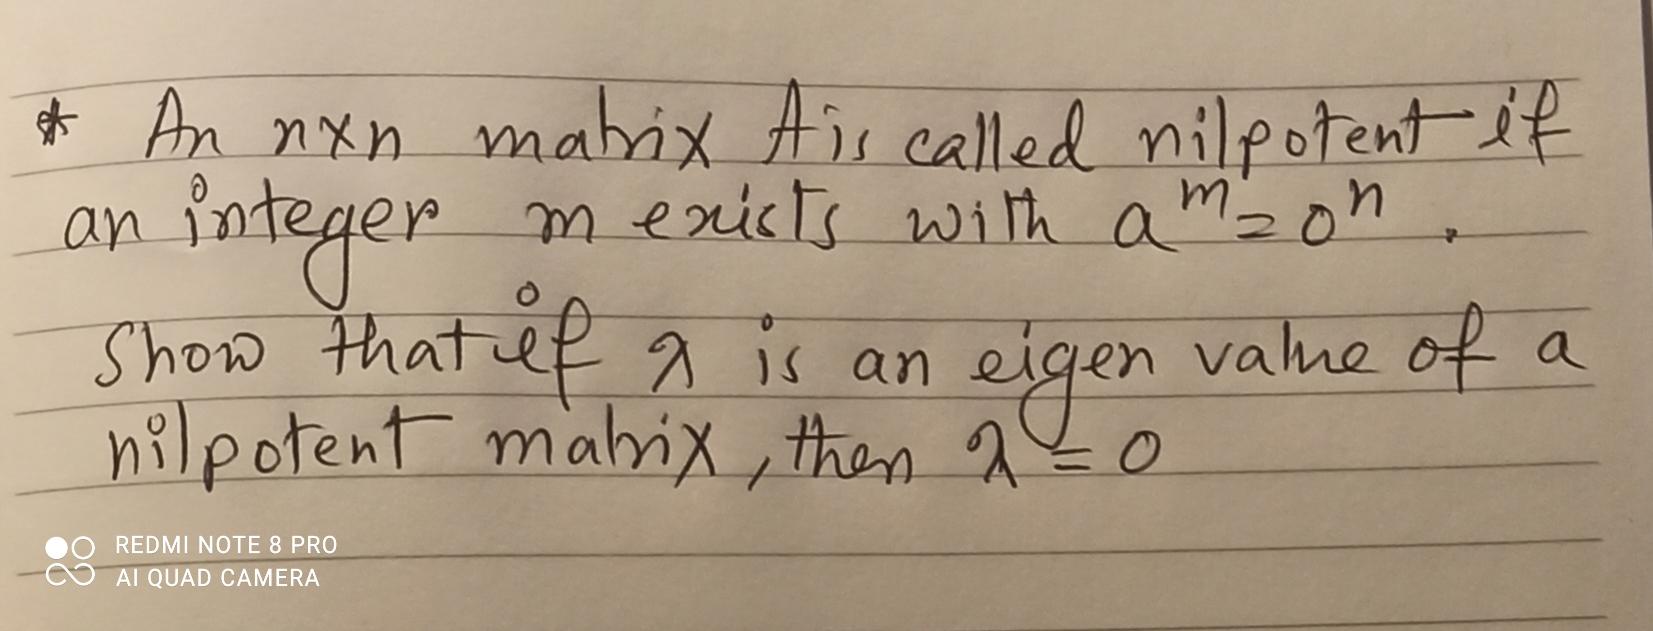 * An nxn matrix A is called nilpotent if
an integer m exists with a^m = 0^n .
Show that if λ is an eigen value of a
nilpotent matrix, then λ = 0
REDMI NOTE 8 PRO
AI QUAD CAMERA